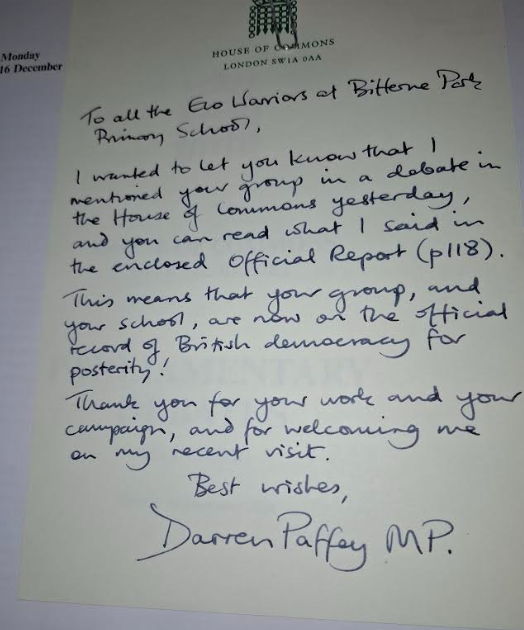 Monday
16 December
HOUSE OF COMMONS
LONDON SW1A 0AA
To all the Eco Warriors at Bitterne Park
Primary School,
I wanted to let you know that I
mentioned your group in a debate in
the House of Commons yesterday,
and you can read what I said in
the enclosed Official Report (p118).
This means that your group, and
your school, are now on the official
record of British democracy for
posterity!
Thank you for your work and your
campaign, and for welcoming me
on my recent visit.
Best wishes,
Darren Paffey MP.